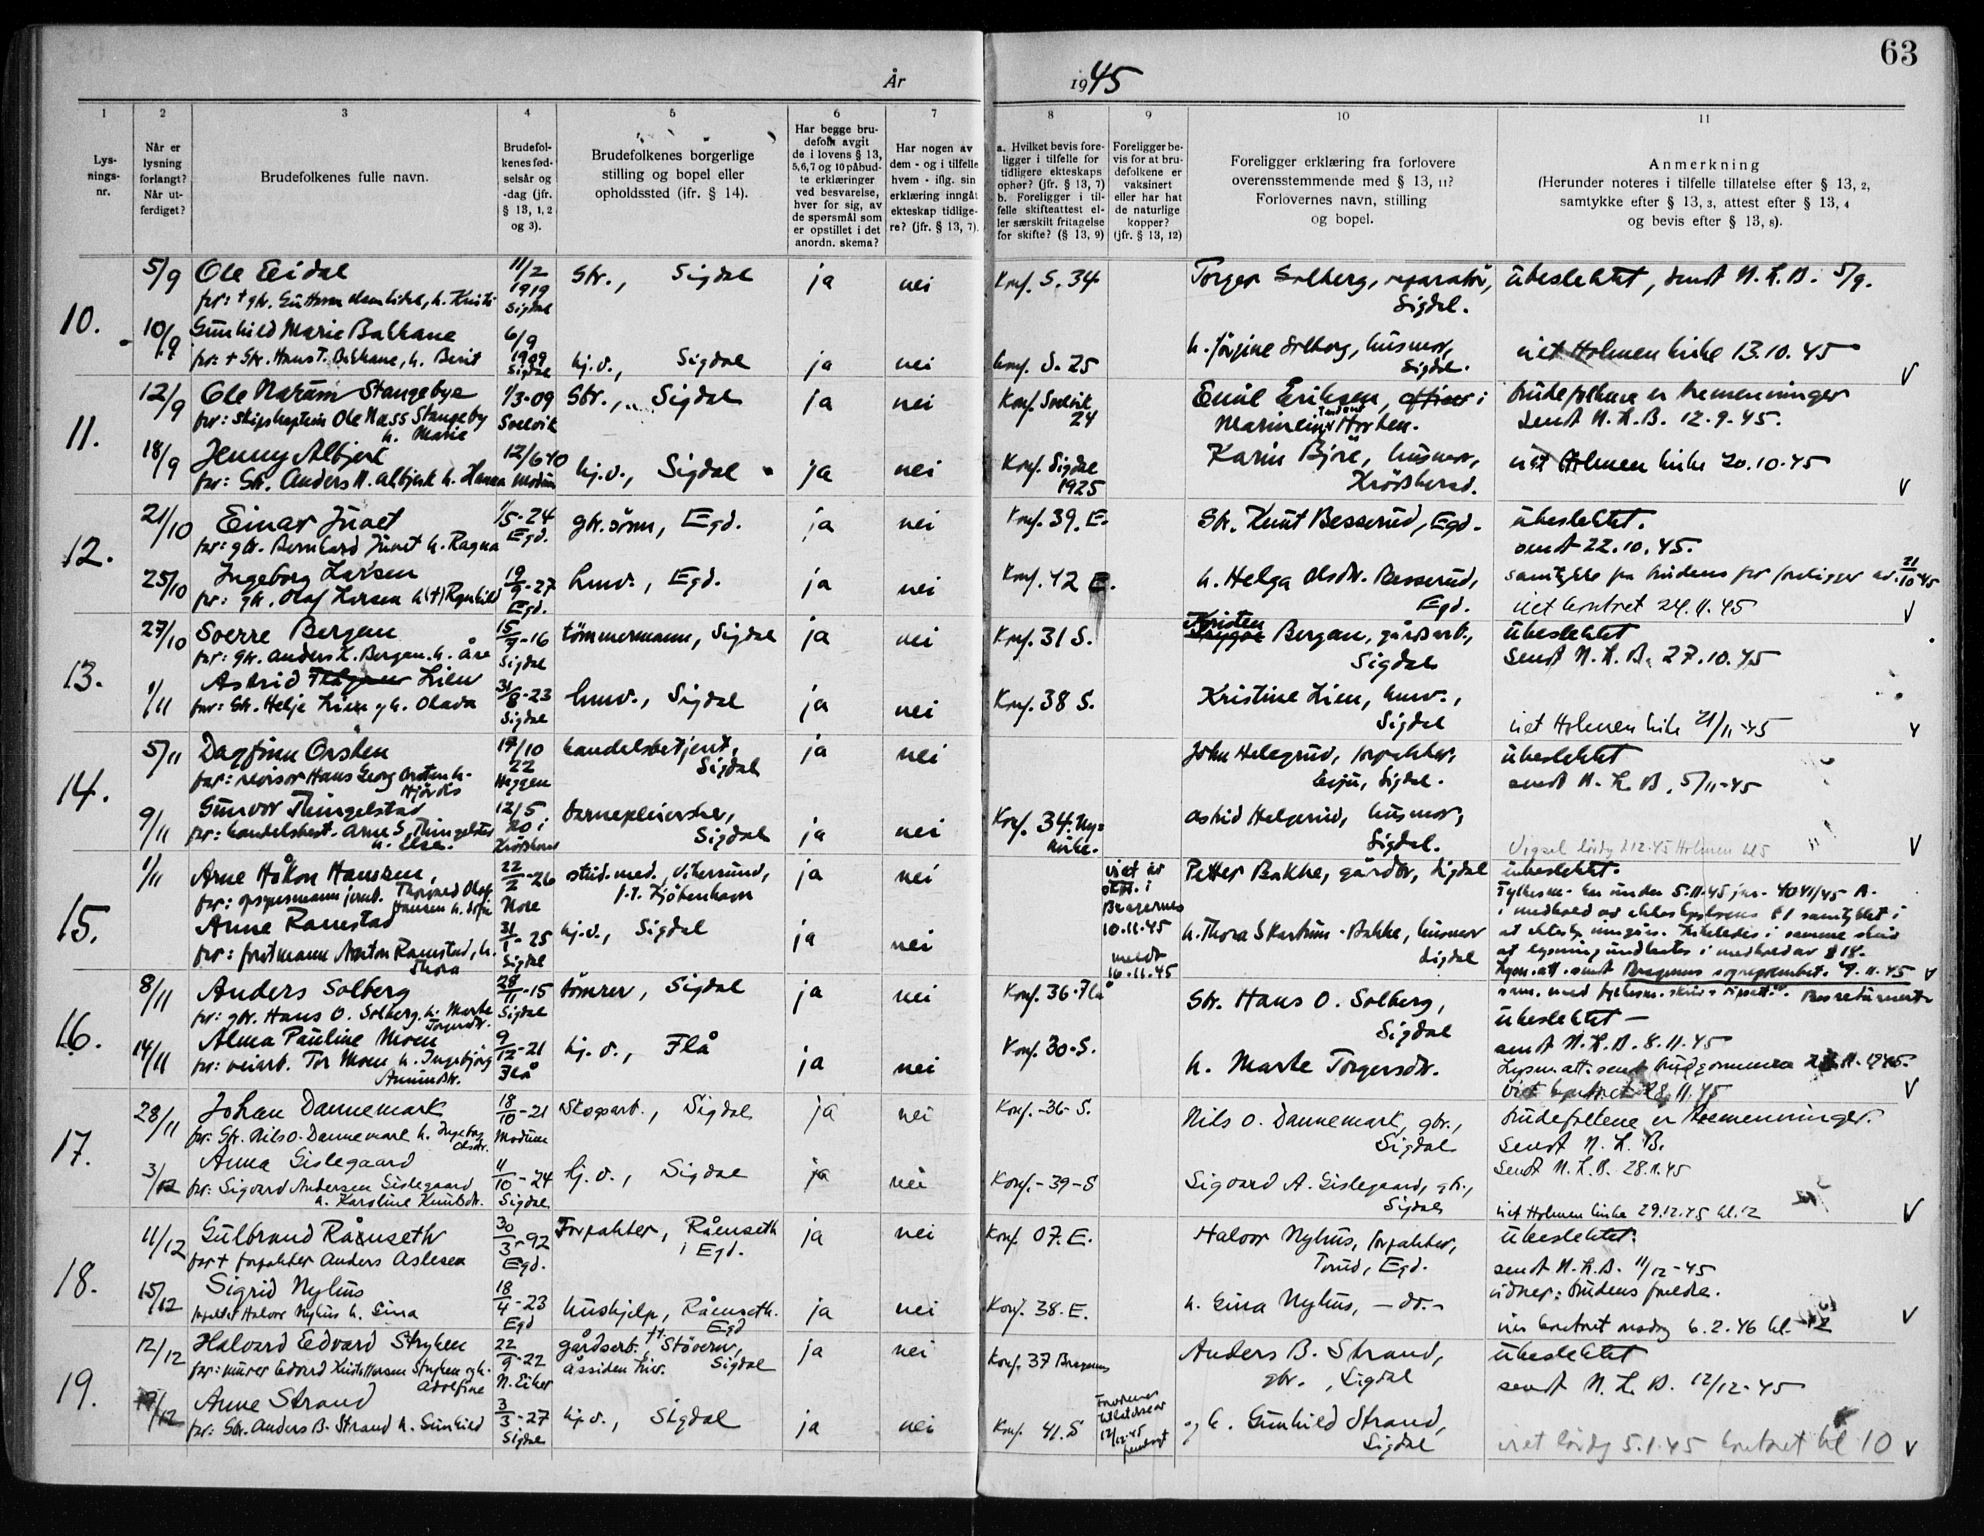 63
År 1945
1
2
3
4
5
6
7
8
9
10
11
Lys-
nings-
nr.
Når er
lysning
forlangt?
Når ut-
ferdiget?
Brudefolkenes fulle navn.
Brudefol-
kenes fød-
selsår og
-dag (jfr.
§ 13, 1, 2
og 3).
Brudefolkenes borgerlige
stilling og bopel eller
opholdssted (jfr. § 14).
Har begge bru-
defolk avgit
de i lovens § 13,
5,6,7 og 10 påbud-
te erklæringer
ved besvarelse,
hver for sig, av
de spørsmål som
er opstillet i det
anordn. skema?
Har nogen av
dem - og i tilfelle
hvem - iflg. sin
erklæring inngått
ekteskap tidlige-
re? (jfr. § 13, 7).
a. Hvilket bevis fore-
ligger i tilfelle for
tidligere ekteskaps
ophør? (jfr. § 13, 7)
b. Foreligger i til-
felle skifteattest el-
ler særskilt fritagelse
for skifte? (§ 13, 9)
Foreligger be-
vis for at bru-
defolkene er
vaksinert
eller har hat
de naturlige
kopper?
(jfr. § 13, 12)
Foreligger erklæring fra forlovere
overensstemmende med § 13, 11?
Forlovernes navn, stilling
og bopel.
Anmerkning
(Herunder noteres i tilfelle tillatelse efter § 13, 2,
samtykke efter § 13, 3, attest efter § 13, 4
og bevis efter § 13, 8).
10.
5/9 Ole Eidal 11/2 1919 Sigdal Gbr., Sigdal ja nei Konf. S. 34 Torger Solberg, reparatør, Sigdal. ubeslektet, sendt N.L.B. 5/9.
10/9 Gunhild Marie Bakkane 6/9 1909 Sigdal hj.v., Sigdal ja nei konf. S. 25 h. Jørgine Solberg, husmor, Sigdal. viet Holmen kirke 13.10.45 V
far: + Gbr. Hans T. Bakkane, h. Berit
11.
12/9 Ole Narum Stangebye 1/3-09 Svelvik Gbr., Sigdal ja nei Konf. Svelvik 24 Emil Eriksen, i Marinen, Horten. brudefolkene er tremenninger
far: skipskaptein Ole Nass Stangeby h. Marie sendt N.L.B. 12.9.45.
18/9 Jenny Albjerk 12/6 Modum hj.v., Sigdal ja nei Konf. Sigdal 1925 Karin Bjøre, husmor, Krødsherad. viet Holmen kirke 20.10.45 V
far: Gbr. Anders H. Albjerk h. Hanna
12.
21/10 Einar Juvet 1/5-24 Egd. gbr.sønn, Egd. ja nei Konf. 39. E. Gbr. Knut Besserud, Egd. ubeslektet.
far: gbr. Bernhard Juvet h. Ragna sendt 22.10.45.
25/10 Ingeborg Larsen 19/9-27 Egd. hmv., Egd. ja nei Konf. 42 E. h. Helga Olsdtr. Besserud, Egd. samtykke fra brudens far foreligger av 21/10 45
far: gbr. Olaf Larsen h (+) Ragnhild viet kontret 24.11.45 V
13.
27/10 Sverre Bergan 15/7-16 Sigdal tømmermann, Sigdal ja nei Konf. 31 S. Kristen Bergan, gårdsarb., Sigdal ubeslektet
far: gbr. Anders K. Bergan h. Åse sendt N.L.B. 27.10.45
1/11 Astrid Lien 31/8-23 Sigdal hmv., Sigdal ja nei Konf. 38 S. Kristine Lien, hmv., Sigdal viet Holmen kirke 21/11-45 V
far: Gbr. Helje Lien og h. Olava
14.
5/11 Dagfinn Orsten 17/10 22 Heggen handelsbetjent, Sigdal ja nei John Helgerud, forpakter, Eiju, Sigdal. ubeslektet
far: revisor Hans Georg Orsten h. Hjørdis sendt N.L.B. 5/11-45
9/11 Gunvor Thingelstad 12/5 20 i Krødsherad barnepleierske, Sigdal ja nei Konf. 34. Ny- kirke. Astrid Helgerud, husmor, Sigdal. Vigsel lørdg 1.12.45 Holmen kl 5 V
far: handelsbest. Arne S. Thingelstad h. Else.
15.
1/11 Arne Håkon Hanssen, 22/2-26 Nore stud.med., Vikersund, p.t. Kjøbenhavn ja nei viet av i Bragernes 10.11.45 meldt 16.11.45 Petter Bakke, gårdbr., Sigdal ubeslektet.
far: opsynsmann jernb. Thorvald Olaf Hansen h. Sofie
Anne Ramstad 31/1-25 Sigdal hj.v., Sigdal ja nei h. Thora Skartum-Bakke, husmor Sigdal
far: forstmann Anton Ramstad, h. Thora
Fylkesm. har under 5.11.45 jnr. 4041/45 A.
i medhold av ekteskapslovens § 1 samtykket i
at ektesk. inngåes. Likeledes i samme skriv
at lysning undlates i medhold av § 18.
Lysn.att. sendt Bragernes sogneprestembet. 9.11.45 V
16.
8/11 Anders Solberg 28/11-15 Sigdal tømrer, Sigdal ja nei Konf. 36-Flå Gbr. Hans O. Solberg, Sigdal ubeslektet -
far: gbr. Hans O. Solberg h. Marte Torgersdtr. sendt N.L.B. 8.11.45
14/11 Alma Pauline Moen 9/12-21 Flå hj.v., Flå ja nei Konf. 30-S. h. Marte Torgersdtr. Lysn.att. sendt brudgommen 11.1945.
far: veiarb. Tor Moen h. Ingebjørg Amundsdtr. viet kontret 28.11.45 V
17.
28/11 Johan Dannemark 18/10-21 Modum Skogsarb., Sigdal ja nei Konf.-36-S. Nils O. Dannemark, gbr., Sigdal brudefolkene er tremenninger.
far: Gbr. Nils O. Dannemark h. Ingeborg Olsdtr. sendt N.L.B.
3/12 Anna Gislegaard 4/10-24 Sigdal hj.v., Sigdal ja nei Konf.-39-S Sigvard A. Gislegaard, gbr., Sigdal sendt N.L.B. 28.11.45
far: Sigvard Andersen Gislegaard h. Karoline Knutsdtr. viet Holmen kirke 29.12.45 kl. 12 V
18.
11/12 Gulbrand Råenseth 30/3-92 Egd. Forpakter, Råenseth i Egd. ja nei Konf. 07. E. Halvor Nyhus, forpakter, Torud, Egd. ubeslektet.
far + forpakter Anders Aslesen sendt N.L.B. 11/12-45
15/12 Sigrid Nyhus 18/4-23 Egd hushjelp, Råenseth. Egd ja nei Konf. 38. E. h. Gina Nyhus, - do.- vidner: brudens foreldre.
forpakter Halvor Nyhus h. Gina viet kontret onsdag 6.2.46 kl. 12 V
19.
12/12 Halvard Edvard Stryken 22/9-22 N. Eiker gårdsarb. Støvern, åssiden Sigdal ja nei Konf. 37 Bragernes Anders B. Strand, gbr., Sigdal ubeslektet
far: murer Edvard Kristoffersen Stryken og h. Adolfine sendt N.L.B. 12/12-45
17/12 Anne Strand 3/3-27 Sigdal hj.v., Sigdal ja nei Konf. 41. S og h. Gunhild Strand, Sigdal viet lørdg 5.1.45 kontret kl 10 V
far: Gbr. Anders B. Strand h. Gunhild